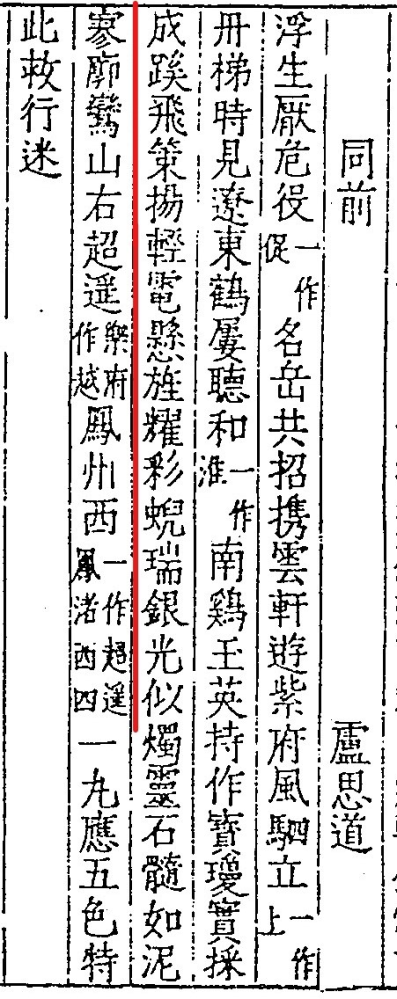 同前 盧思道
浮生厭危役一作促名岳共招携雲軒遊紫府風駟立一作上
丹梯時見遼東鶴屢聽和一作淮南鷄玉英持作寶瓊實採
成蹊飛策揚輕電懸旌耀彩蜺瑞銀光似燭靈石髓如泥
寥廓鸞山右超遥樂府作越鳳州西一作超遥鳳渚西四一丸應五色特
此救行迷